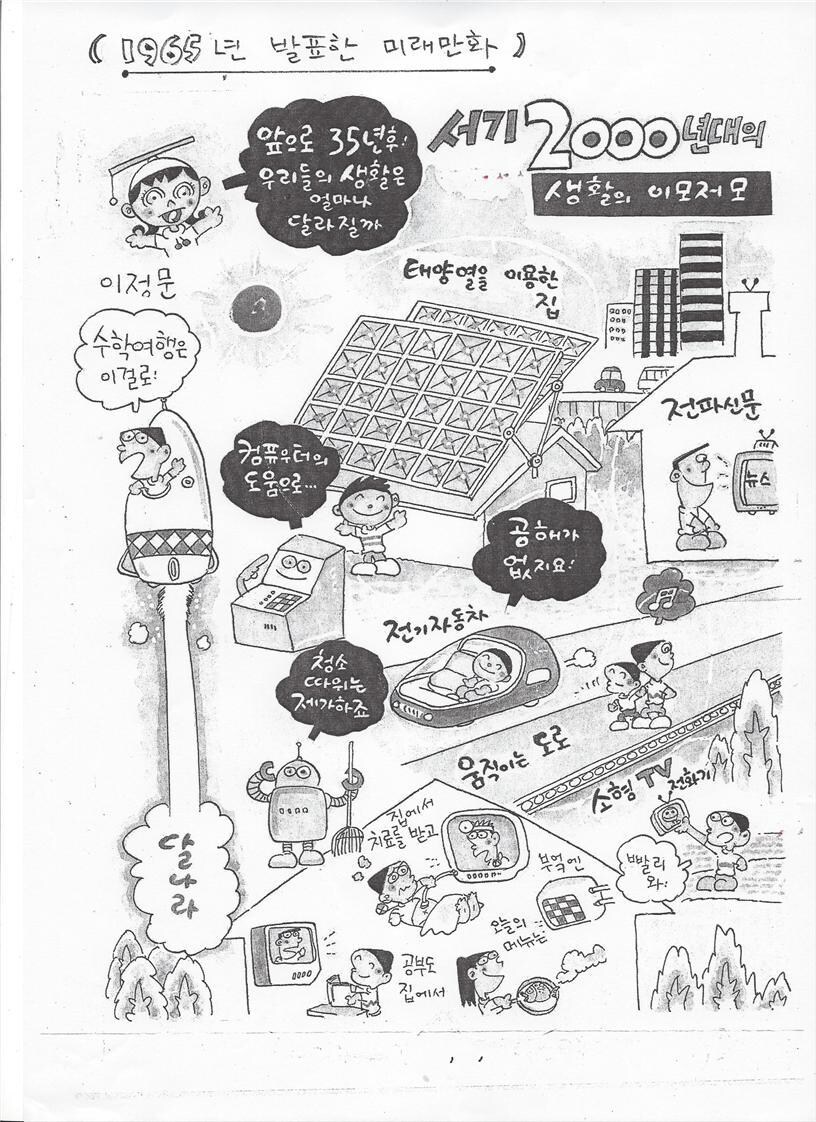 ( 1965년 발표한 미래만화 )
앞으로 35년후!
우리들의 생활은
얼마나
달라질까
서기 2000년대의
생활의 이모저모
이정문
태양열을 이용한
집
수학여행은
이걸로!
전파신문
뉴스
컴퓨우터의
도움으로...
공해가
없지요!
전기자동차
청소
따위는
제가하죠
움직이는 도로
소형 TV
전화기
빨리
와!
달
나
라
집에서
치료를 받고
부엌엔
오늘의
메뉴는
공부도
집에서